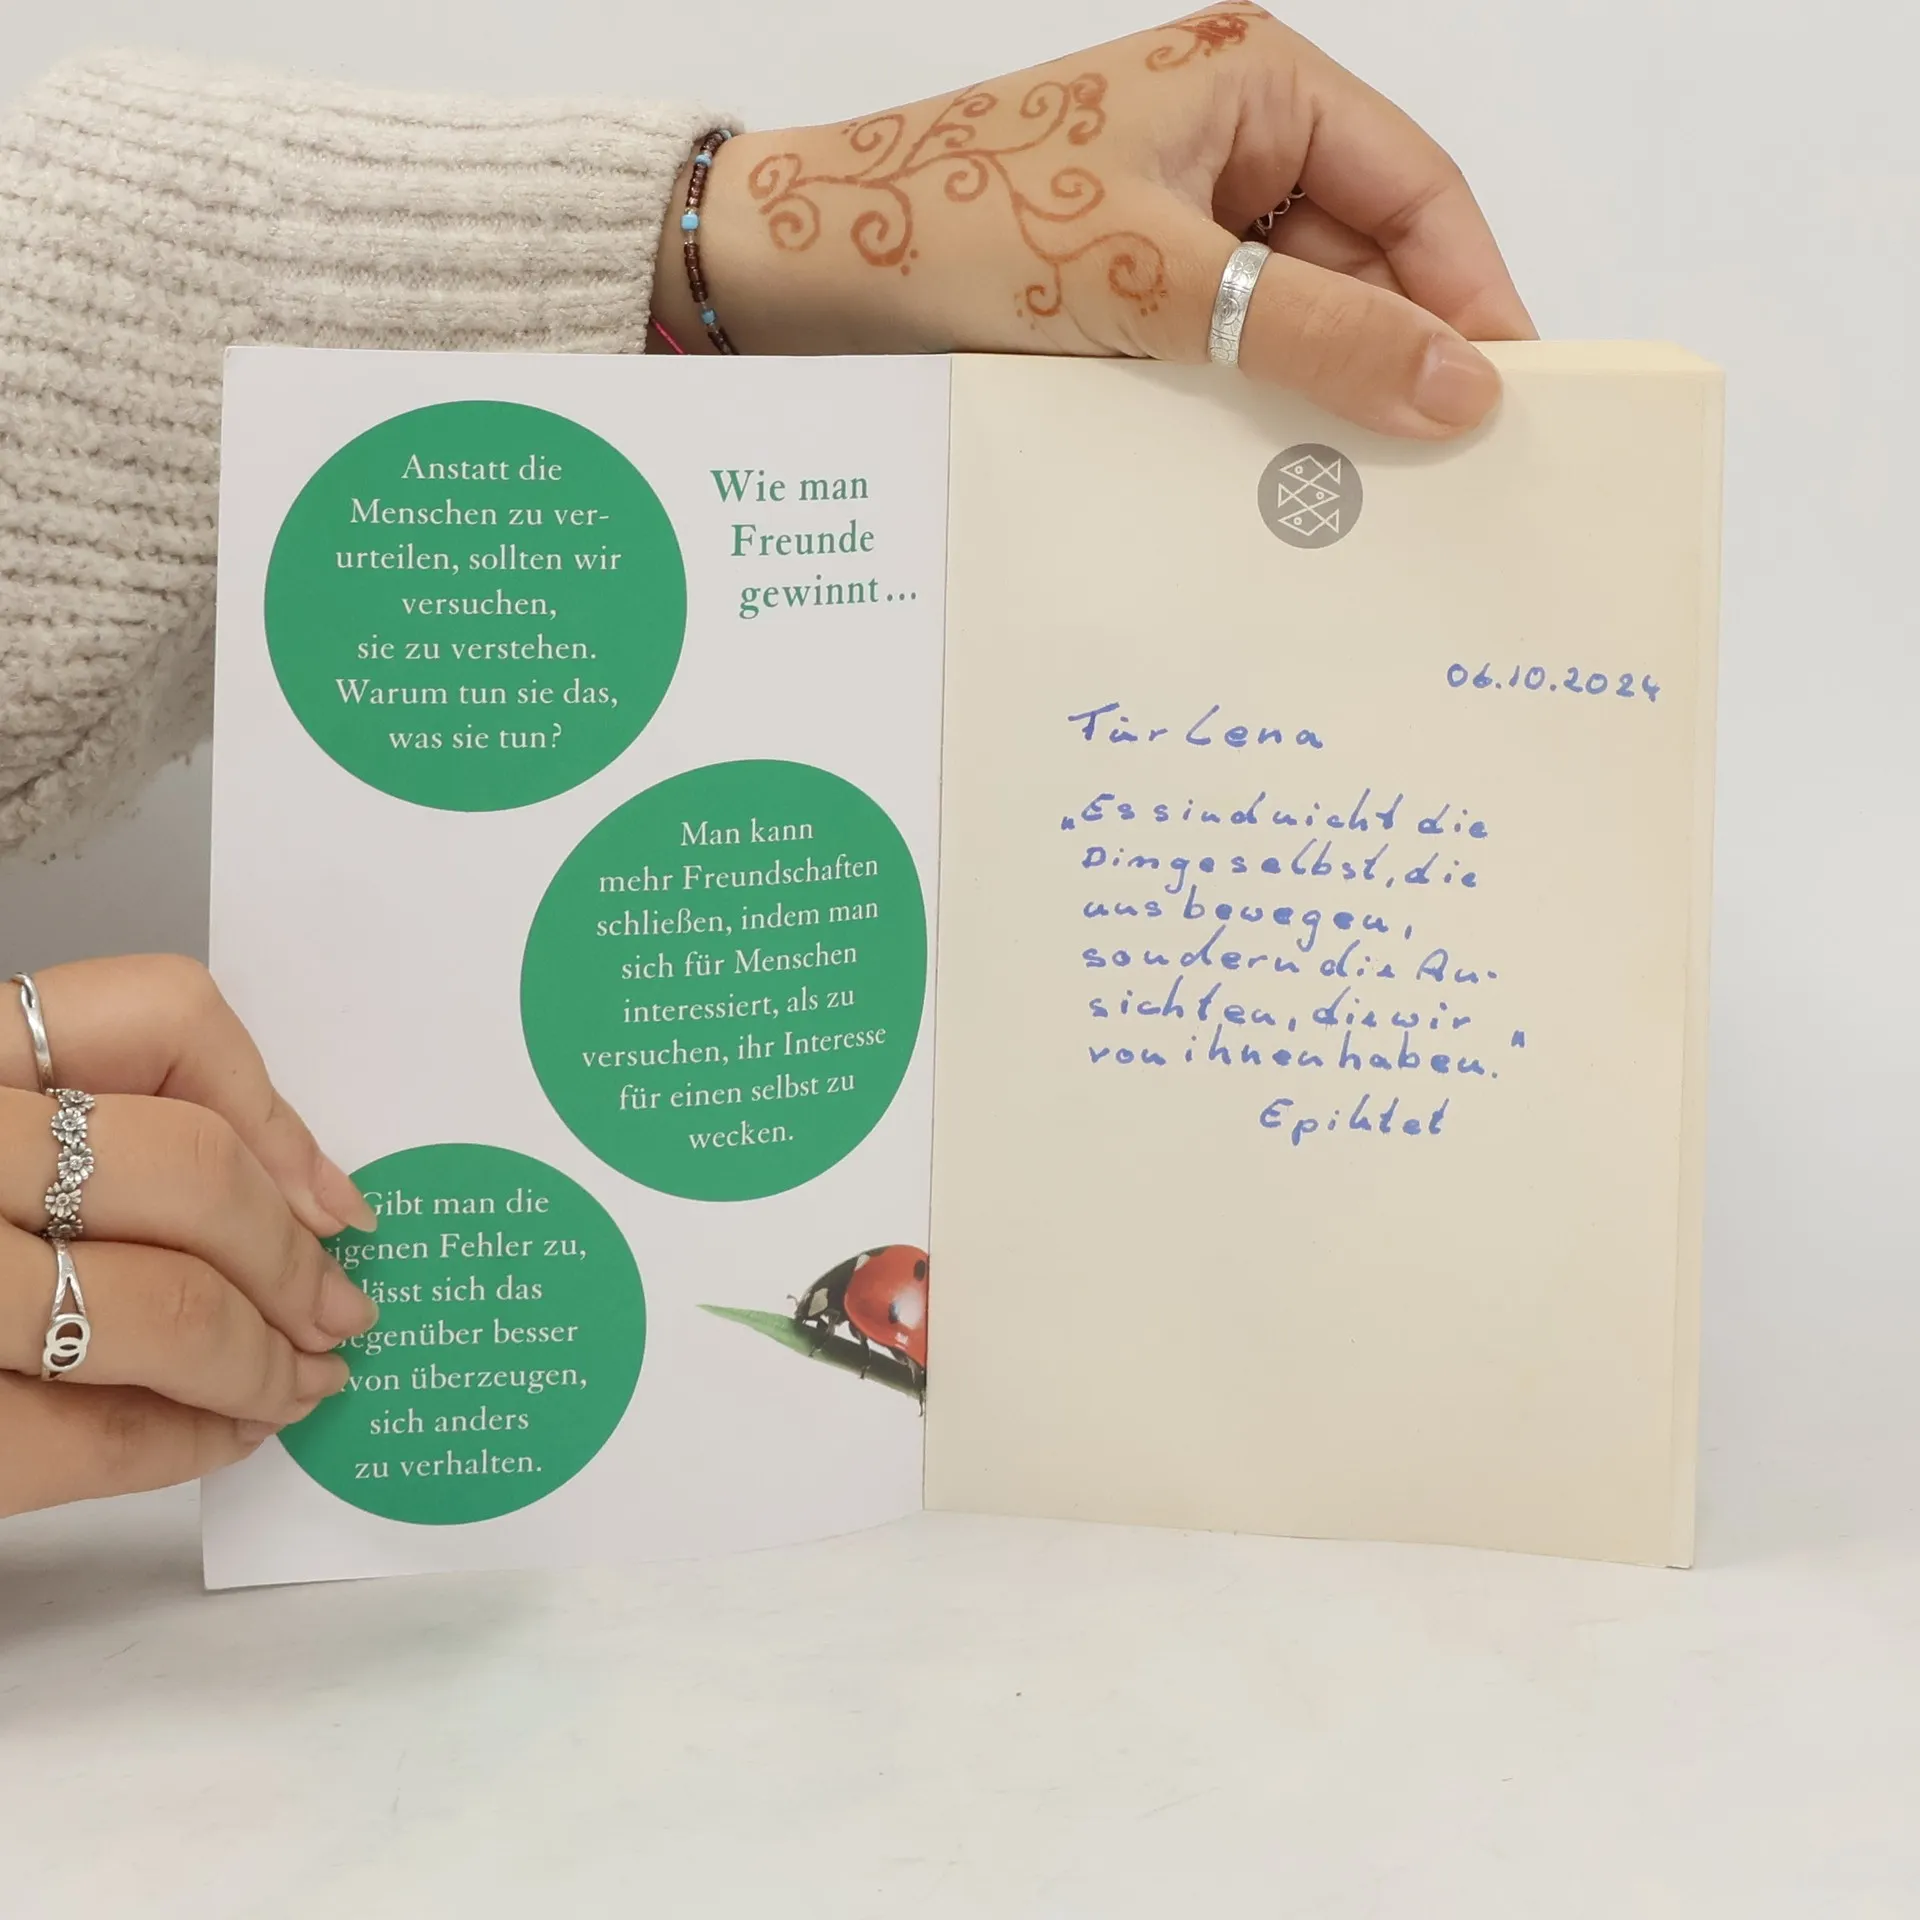 Anstatt die
Menschen zu ver-
urteilen, sollten wir
versuchen,
sie zu verstehen.
Warum tun sie das,
was sie tun?
Wie man
Freunde
gewinnt...
Man kann
mehr Freundschaften
schließen, indem man
sich für Menschen
interessiert, als zu
versuchen, ihr Interesse
für einen selbst zu
wecken.
Gibt man die
igenen Fehler zu,
lässt sich das
egenüber besser
von überzeugen,
sich anders
zu verhalten.
06.10.2024
Für Lena
„Es sind nicht die
Dinge selbst, die
uns bewegen,
sondern die An-
sichten, die wir
von ihnen haben."
Epiktet